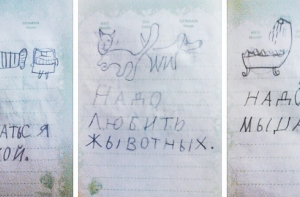 АТЬСЯ
КОЙ.
НАДО
ЛЮБИТЬ
ЖЫВОТНЫХ.
НАДО
МЫША